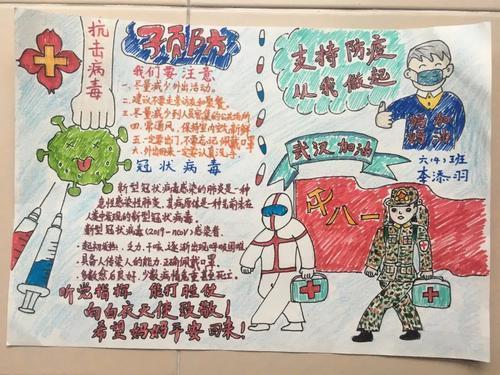 抗击病毒
预防
我们要注意
一、尽量减少外出活动。
二、建议不要走亲访友和聚餐。
三、尽量减少到人员密集的公共场所
四、常通风,保持室内空气新鲜
五、一定要出门,不要忘记佩戴口罩
六、外出回来,一定要认真洗手。
冠状病毒
新型冠状病毒感染的肺炎是一种
急性感染性肺炎。其病原体是一种先前未在
人类中发现的新型冠状病毒。
新型冠状病毒(2019-nCoV)感染者
起初发热、乏力、干咳、逐渐出现呼吸困难
具备人传染人的能力,正确佩戴口罩。
多数愈后良好,少数病情危重甚至死亡。
听党指挥 能打胜仗
向白衣天使致敬!
希望妈妈平安回来!
支持防疫
从我做起
妈妈
加油
六(4)班
李添羽
武汉加油
八一